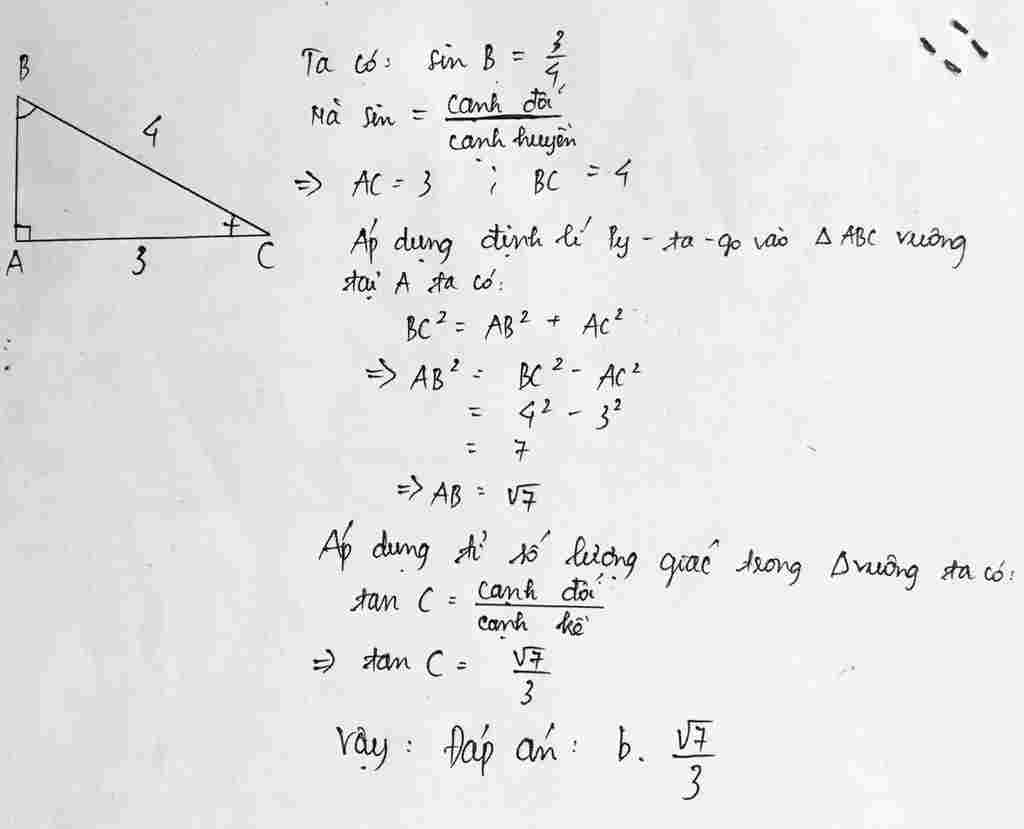 B
4
A
3
C
Ta có: sin B = 3/4
Mà sin = cạnh đối / cạnh huyền
=> AC = 3 ; BC = 4
Áp dụng định lí Py - ta - go vào Δ ABC vuông
tại A ta có:
BC² = AB² + AC²
=> AB² = BC² - AC²
= 4² - 3²
= 7
=> AB = √7
Áp dụng tỉ số lượng giác trong Δ vuông ta có:
tan C = cạnh đối / cạnh kề
=> tan C = √7/3
Vậy: Đáp án: b. √7/3